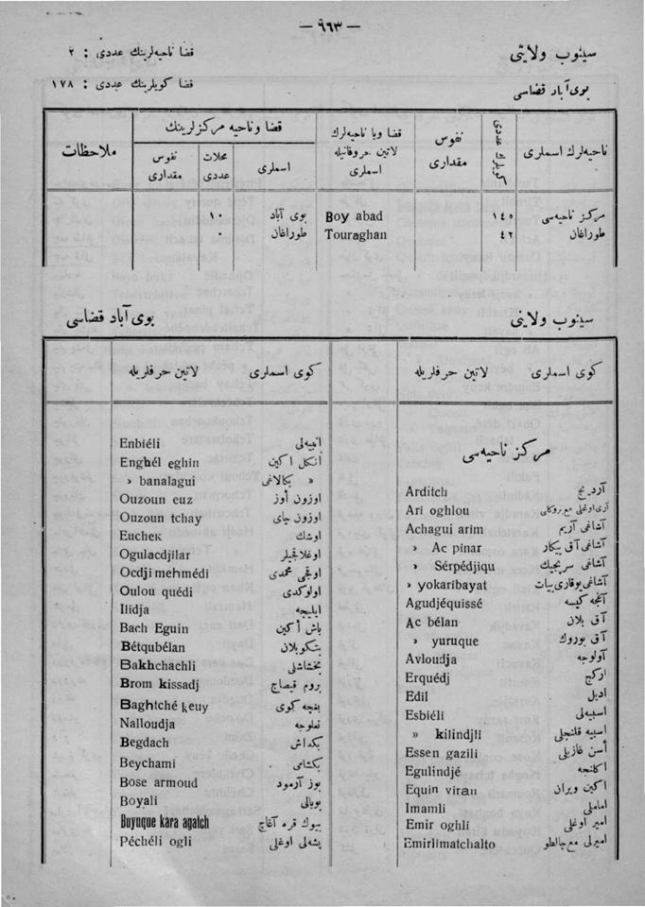 — ٩٦٣ —
سینوب ولایتی
قضا ناحیه‌لرینك عددی : ٢
بوی آباد قضاسی
قضا کویلرینك عددی : ١٧٨
ناحیه‌لرك اسملری
کویلرك عددی
نفوس مقداری
قضا ویا ناحیه‌لرك لاتین حروفاتیله اسملری
قضا و ناحیه مرکزلرینك
اسملری
محلات عددی
نفوس مقداری
ملاحظات
مرکز ناحیه‌سی ١٤٥ Boy abad بوی آباد ١٠
طوراغان ٤٢ Touraghan طوراغان ٠
سینوب ولایتی
بوی آباد قضاسی
کوی اسملری لاتین حرفلریله
مرکز ناحیه‌سی
Arditch آردیج
Ari oghlou
Achagui arim آشاغی آریم
» Ac pinar آشاغی آق پیکار
» Sérpédjiqu آشاغی سرپجیك
» yokaribayat آشاغی یوقاری بیات
Agudjéquissé آکجه کیسه
Ac bélan آق بلان
» yuruque آق یوروك
Avloudja آولوجه
Erquédj ارکج
Edil ادیل
Esbiéli اسبیه‌لی
» kilindjli اسبیه قلنجلی
Essen gazili أسن غازیلی
Egulindjé اکلنجه
Equin viran اکین ویران
Imamli اماملی
Emir oghli امیر اوغلی
Emirlimatchalto امیرلی مع چالطو
کوی اسملری لاتین حرفلریله
Enbiéli انبیه‌لی
Enghél eghin انکل اکین
» banalagui
Ouzoun euz اوزون أوز
Ouzoun tchay اوزون چای
Euchek اوشك
Ogulacdjilar اوغلاقجیلر
Ocdji mehmédi اوقجی محمدی
Oulou quédi اولوکدی
Ilidja ایلیجه
Bach Eguin باش أکین
Bétqubélan بتکوبلان
Bakhchachli بخشاشلی
Brom kissadj بروم قیصاج
Baghtché keuy بغچه کوی
Nalloudja نعلوجه
Begdach بکداش
Beychami بکشامی
Bose armoud بوز آرمود
Boyali بویالی
Buyuque kara agatch بیوك قره آغاچ
Péchéli ogli پشه‌لی اوغلی